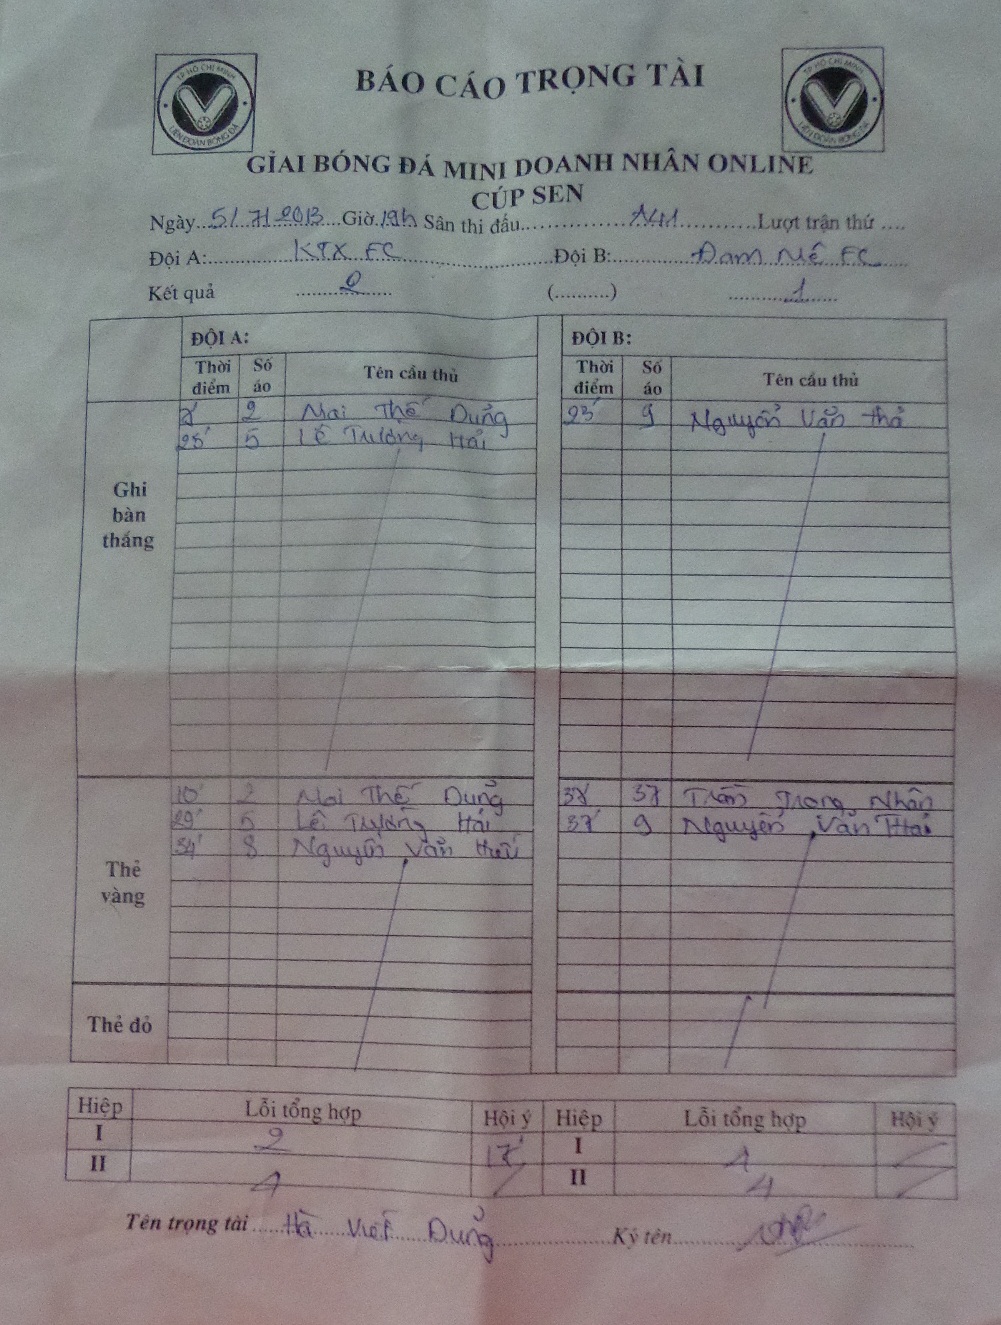 TP HỒ CHÍ MINH
LIÊN ĐOÀN BÓNG ĐÁ
BÁO CÁO TRỌNG TÀI
TP HỒ CHÍ MINH
LIÊN ĐOÀN BÓNG ĐÁ
GIẢI BÓNG ĐÁ MINI DOANH NHÂN ONLINE
CÚP SEN
Ngày 5/7/2013 Giờ 19h Sân thi đấu Lượt trận thứ
Đội A: KTX FC Đội B: Đam Mê FC
Kết quả 2 (..........) 1
ĐỘI A: ĐỘI B:
Thời điểm Số áo Tên cầu thủ Thời điểm Số áo Tên cầu thủ
Ghi bàn thắng
2 Mai Thế Dũng 23' 9 Nguyễn Văn
28' 5 Lê Trường Hải
Thẻ vàng
10' 2 Mai Thế Dũng 37 Trần Trọng Nhân
29' 5 Lê Trường Hải 37' 9 Nguyễn Văn
34' 8 Nguyễn Văn
Thẻ đỏ
Hiệp Lỗi tổng hợp Hội ý Hiệp Lỗi tổng hợp Hội ý
I 2 17' I 1
II 1 II 4
Tên trọng tài Hà Viết Dũng Ký tên